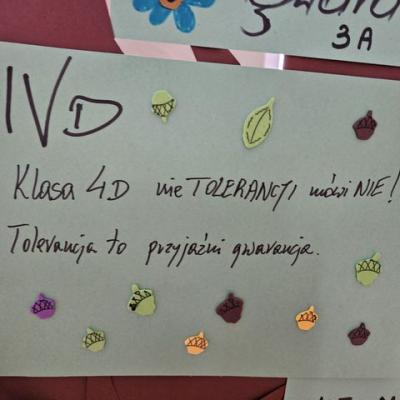 3A
IVD
Klasa 4D nie TOLERANCJI mówi NIE!
Tolerancja to przyjaźni gwarancja.